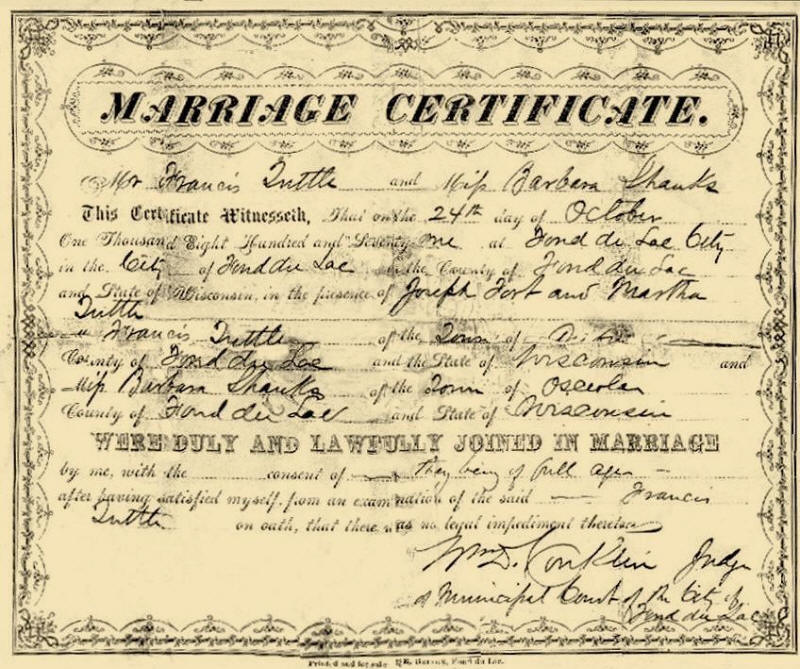 MARRIAGE CERTIFICATE.
Mr Francis Tuttle and Miss Barbara Shanks
This Certificate Witnesseth, That on the 24th day of October
One Thousand Eight Hundred and Seventy one at Fond du Lac City
in the City of Fond du Lac in the County of Fond du Lac
and State of Wisconsin, in the presence of Joseph Fort and Martha
Tuttle
Francis Tuttle of the Town of
County of Fond du Lac and the State of Wisconsin and
Miss Barbara Shanks of the Town of Osceola
County of Fond du Lac and State of Wisconsin
WERE DULY AND LAWFULLY JOINED IN MARRIAGE
by me, with the consent of they being of full age
after having satisfied myself, from an examination of the said Francis
Tuttle on oath, that there was no legal impediment thereto
Wm D. Conklin Judge
of Municipal Court of the City of
Fond du Lac
Printed and for sale Fond du Lac.